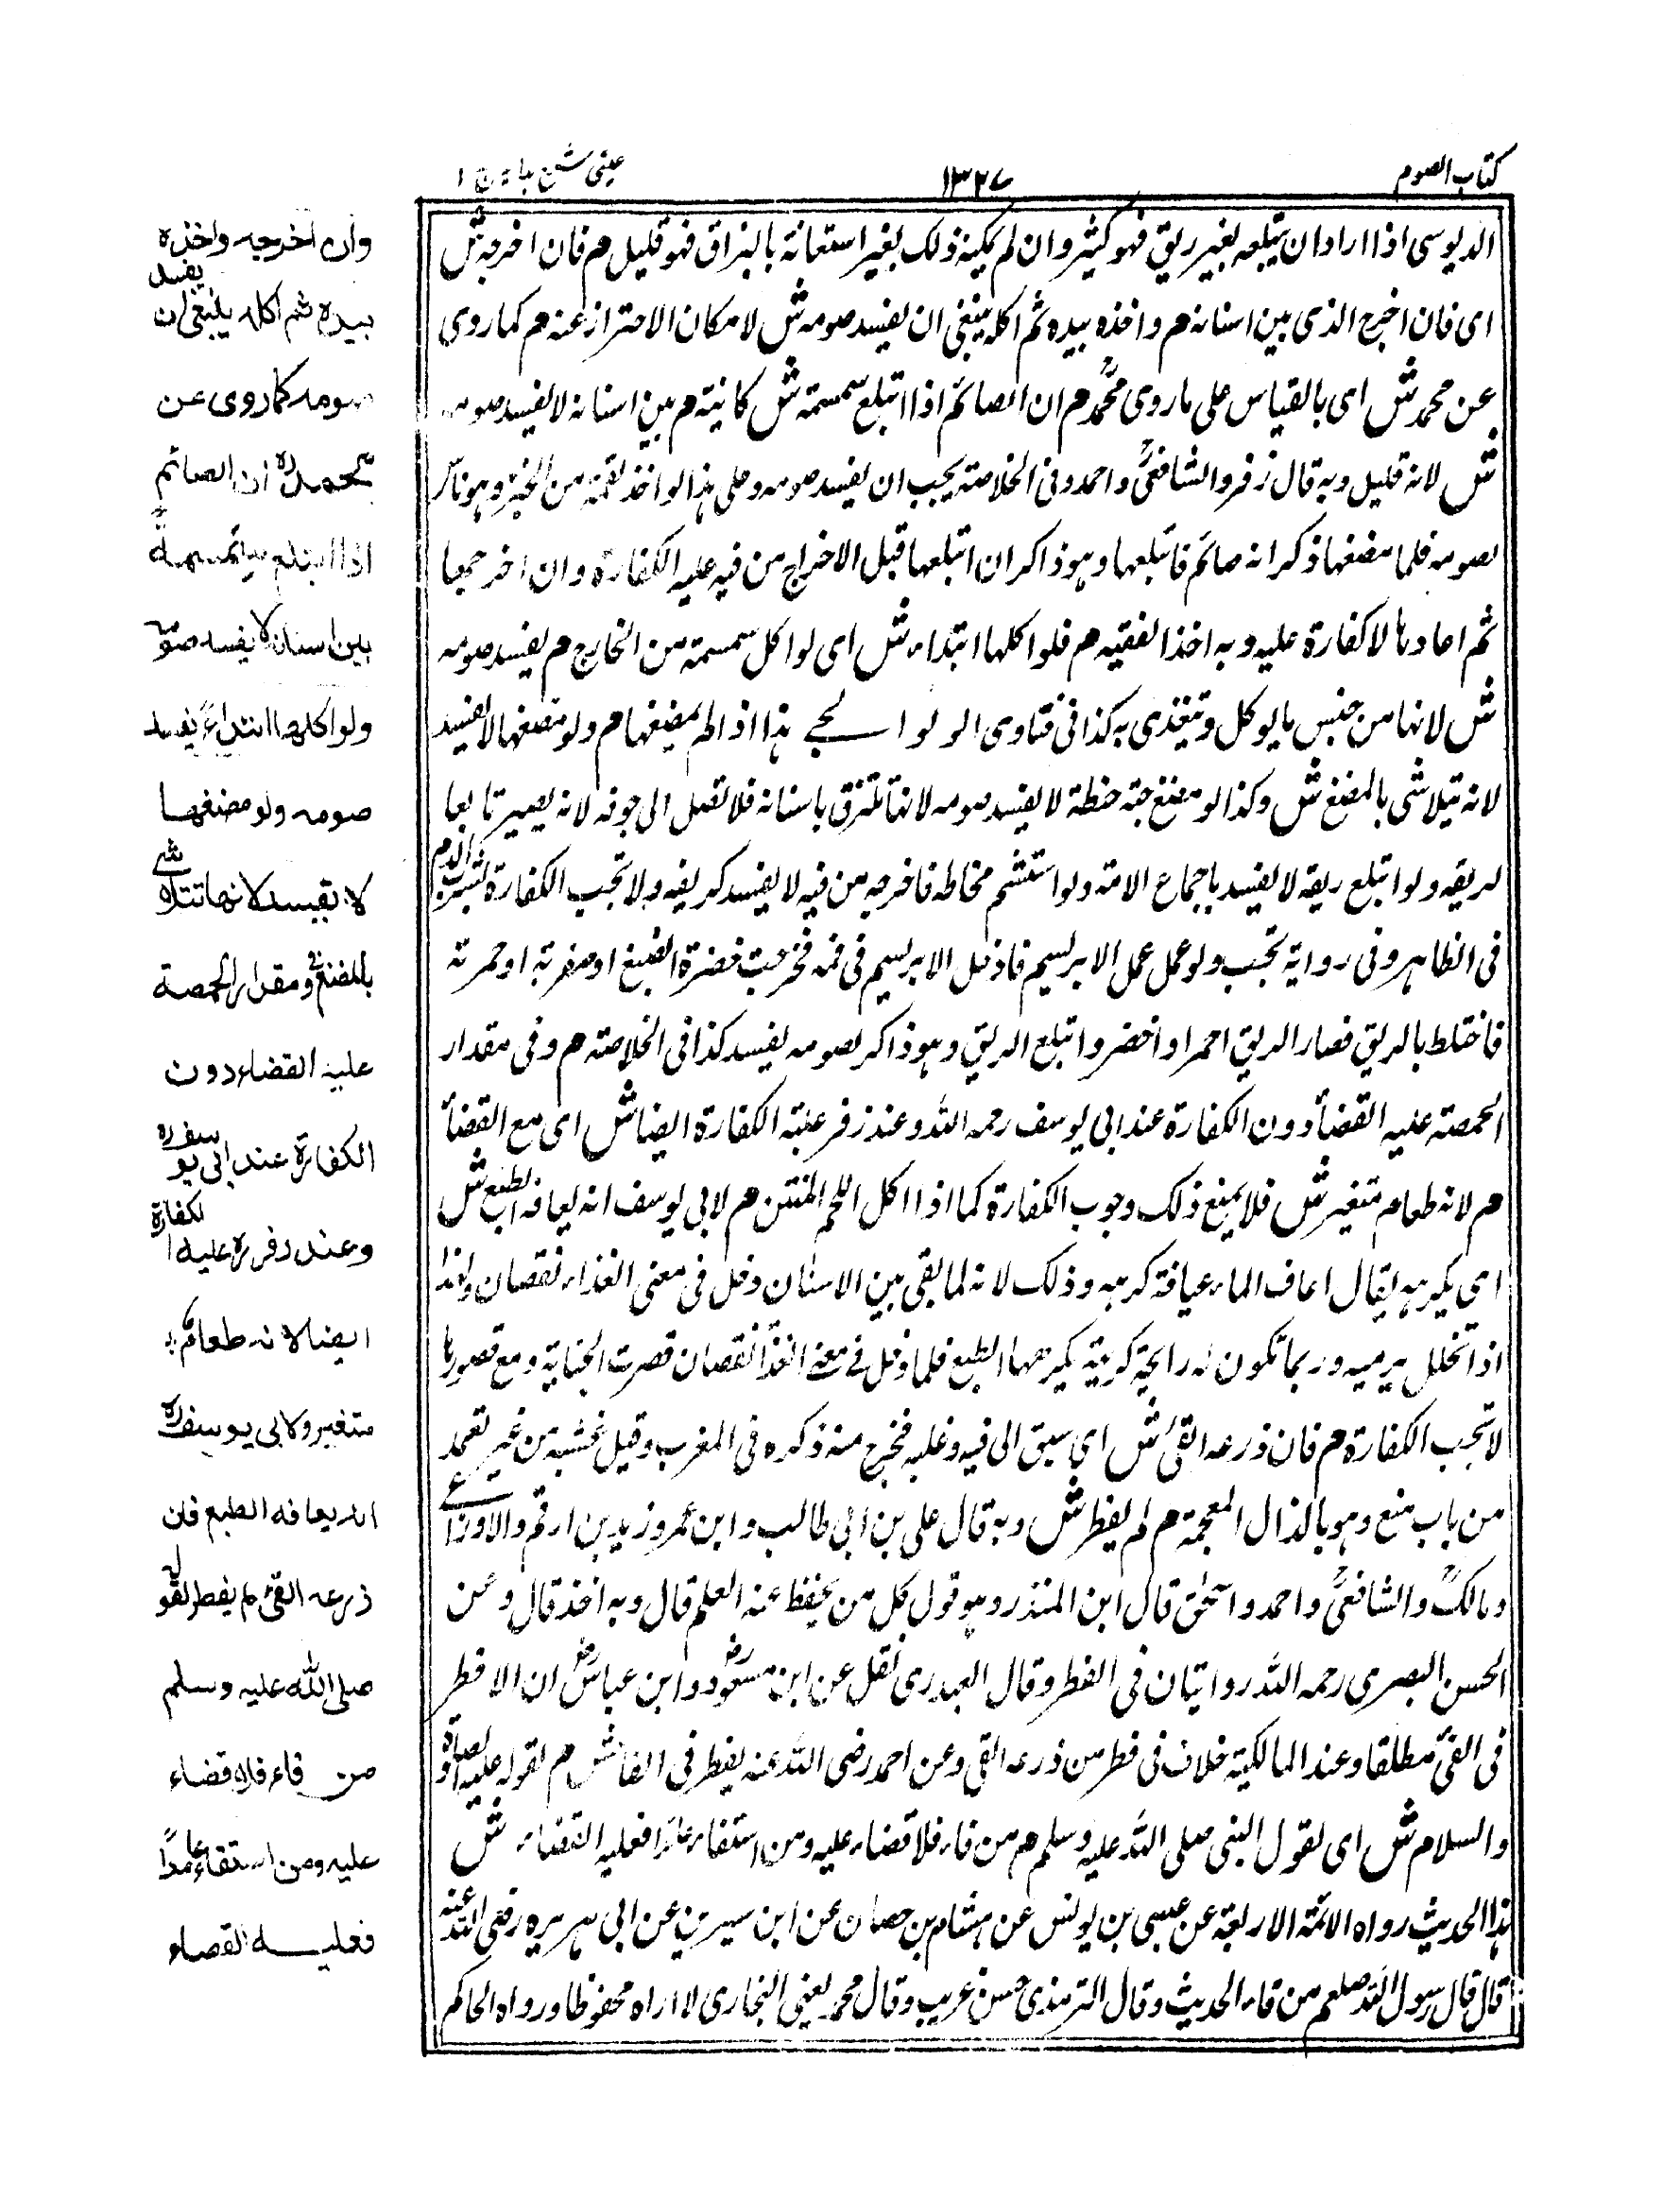 كتاب الصوم
١٣٢٧
عينى شرح هداية ج ١
الدبوسى اذا اراد ان يبتلعه بغير ريق فهو كثير وان لم يمكنه ذلك بغير استعانة بالبزاق فهو قليل م فان اخرجه ش
اى فان اخرج الذى بين اسنانه م واخذه بيده ثم اكله ينبغى ان يفسد صومه ش لامكان الاحتراز عنه م كما روى
عن محمد ش اى بالقياس على ما روى محمد م ان الصائم اذا ابتلع سمسمة ش كائنة م بين اسنانه لا يفسد صومه
ش لانه قليل وبه قال زفر والشافعى واحمد وفى الخلاصة يجب ان يفسد صومه وعلى هذا لو اخذ لقمة من الخبز وهو ناس
لصومه فلما مضغها ذكر انه صائم فابتلعها وهو ذاكر ان ابتلعها قبل الاخراج من فيه عليه الكفارة وان اخرجها
ثم اعادها لا كفارة عليه وبه اخذ الفقيه م فلو اكلها ابتداء ش اى لو اكل سمسمة من الخارج م يفسد صومه
ش لانها من جنس ما يوكل ويتغذى به كذا فى فتاوى الولوالجے هذا اذا لم يمضغها م ولو مضغها لا يفسد
لانه يتلاشى بالمضغ ش وكذا لو مضغ حبة حنطة لا يفسد صومه لانها تلتزق باسنانه فلا تصل الى جوفه لانه يصير تابعا
لريقه ولو ابتلع ريقه لا يفسد باجماع الامة ولو استنشم مخاطه فاخرجه من فيه لا يفسد كريقه ولا تجب الكفارة بشربه الدم
فى الظاهر وفى رواية تجب ولو عمل عمل الابريسم فادخل الابريسم فى فمه فخرجت خضرة الصبغ او صفرته او حمرته
فاختلط بالريق فصار الريق احمر او اخضر وابتلع الريق وهو ذاكر لصومه يفسد كذا فى الخلاصة م وفى مقدار
الحمصة عليه القضاء دون الكفارة عند ابى يوسف رحمه الله وعند زفر عليه الكفارة ايضا ش اى مع القضاء
م لانه طعام متغير ش فلا يمنع ذلك وجوب الكفارة كما اذا اكل اللحم المنتن م لابى يوسف انه يعافه الطبع ش
اى يكرهه يقال اعاف الماء عيافة كرهه وذلك لانه لما بقى بين الاسنان دخل فى معنى الغذاء نقصان ولهذا
اذا تخلل يرميه وربما تكون له رايحة كريهة يكرهها الطبع فلما دخل فے معنے الغذاء نقصان قصرت الجناية ومع قصورها
لا تجب الكفارة م فان ذرعه القئ ش اى سبق الى فيه وغلبه فخرج منه ذكره فى المغرب وقيل غشيه من غير تعمد
من باب منع وهو بالذال المعجمة م لم يفطر ش وبه قال على بن ابى طالب وابن عمر وزيد بن ارقم والاوزاعے
ومالك والشافعى واحمد واسحق قال ابن المنذر وهو قول كل من يحفظ عنه العلم قال وبه اخذ قال وعن
الحسن البصرى رحمه الله روايتان فى الفطر وقال العبدرى نقل عن ابن مسعود وابن عباس ان الافطر
فى القئ مطلقا وعند المالكية خلاف فى فطر من ذرعه القى وعن احمد رضى الله عنه يفطر فى الفاحش م لقوله عليه الصلوة
والسلام ش اى لقول النبى صلى الله عليه وسلم م من قاء فلا قضاء عليه ومن استقاء عامدا فعليه القضاء ش
هذا الحديث رواه الائمة الاربعة عن عيسى بن يونس عن هشام بن حصان عن ابن سيرين عن ابى هريره رضى الله عنه
قال قال رسول الله صلعم من قاء الحديث وقال الترمذى حسن غريب وقال محمد يعنى البخارى لا اراه محفوظا ورواه الحاكم
وان اخرجه واخذه
بيده ثم اكله ينبغى ان يفسد
صومه كما روى عن
محمد رح ان الصائم
اذا ابتلع سمسمة
بين اسنانه لا يفسد صومه
ولو اكلها ابتداءً يفسد
صومه ولو مضغها
لا يفسد لانها تتلاشے
بالمضغ وفى مقدار الحمصة
عليه القضاء دون
الكفارة عند ابى يوسف ره
وعند زفر ره عليه الكفارة
ايضا لانه طعام
متغير ولابى يوسف ره
انه يعافه الطبع فان
ذرعه القئ لم يفطر لقوله
صلى الله عليه وسلم
من قاء فلا قضاء
عليه ومن استقاء عامداً
فعليه القضاء